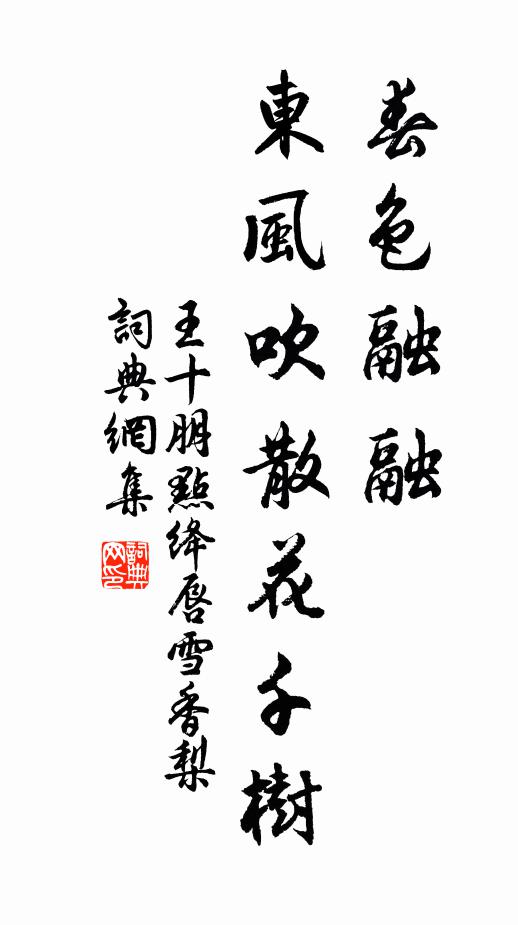 春色融融
東風吹散花千樹
王十朋點絳唇雪香梨
詞典網集
詞典
网印